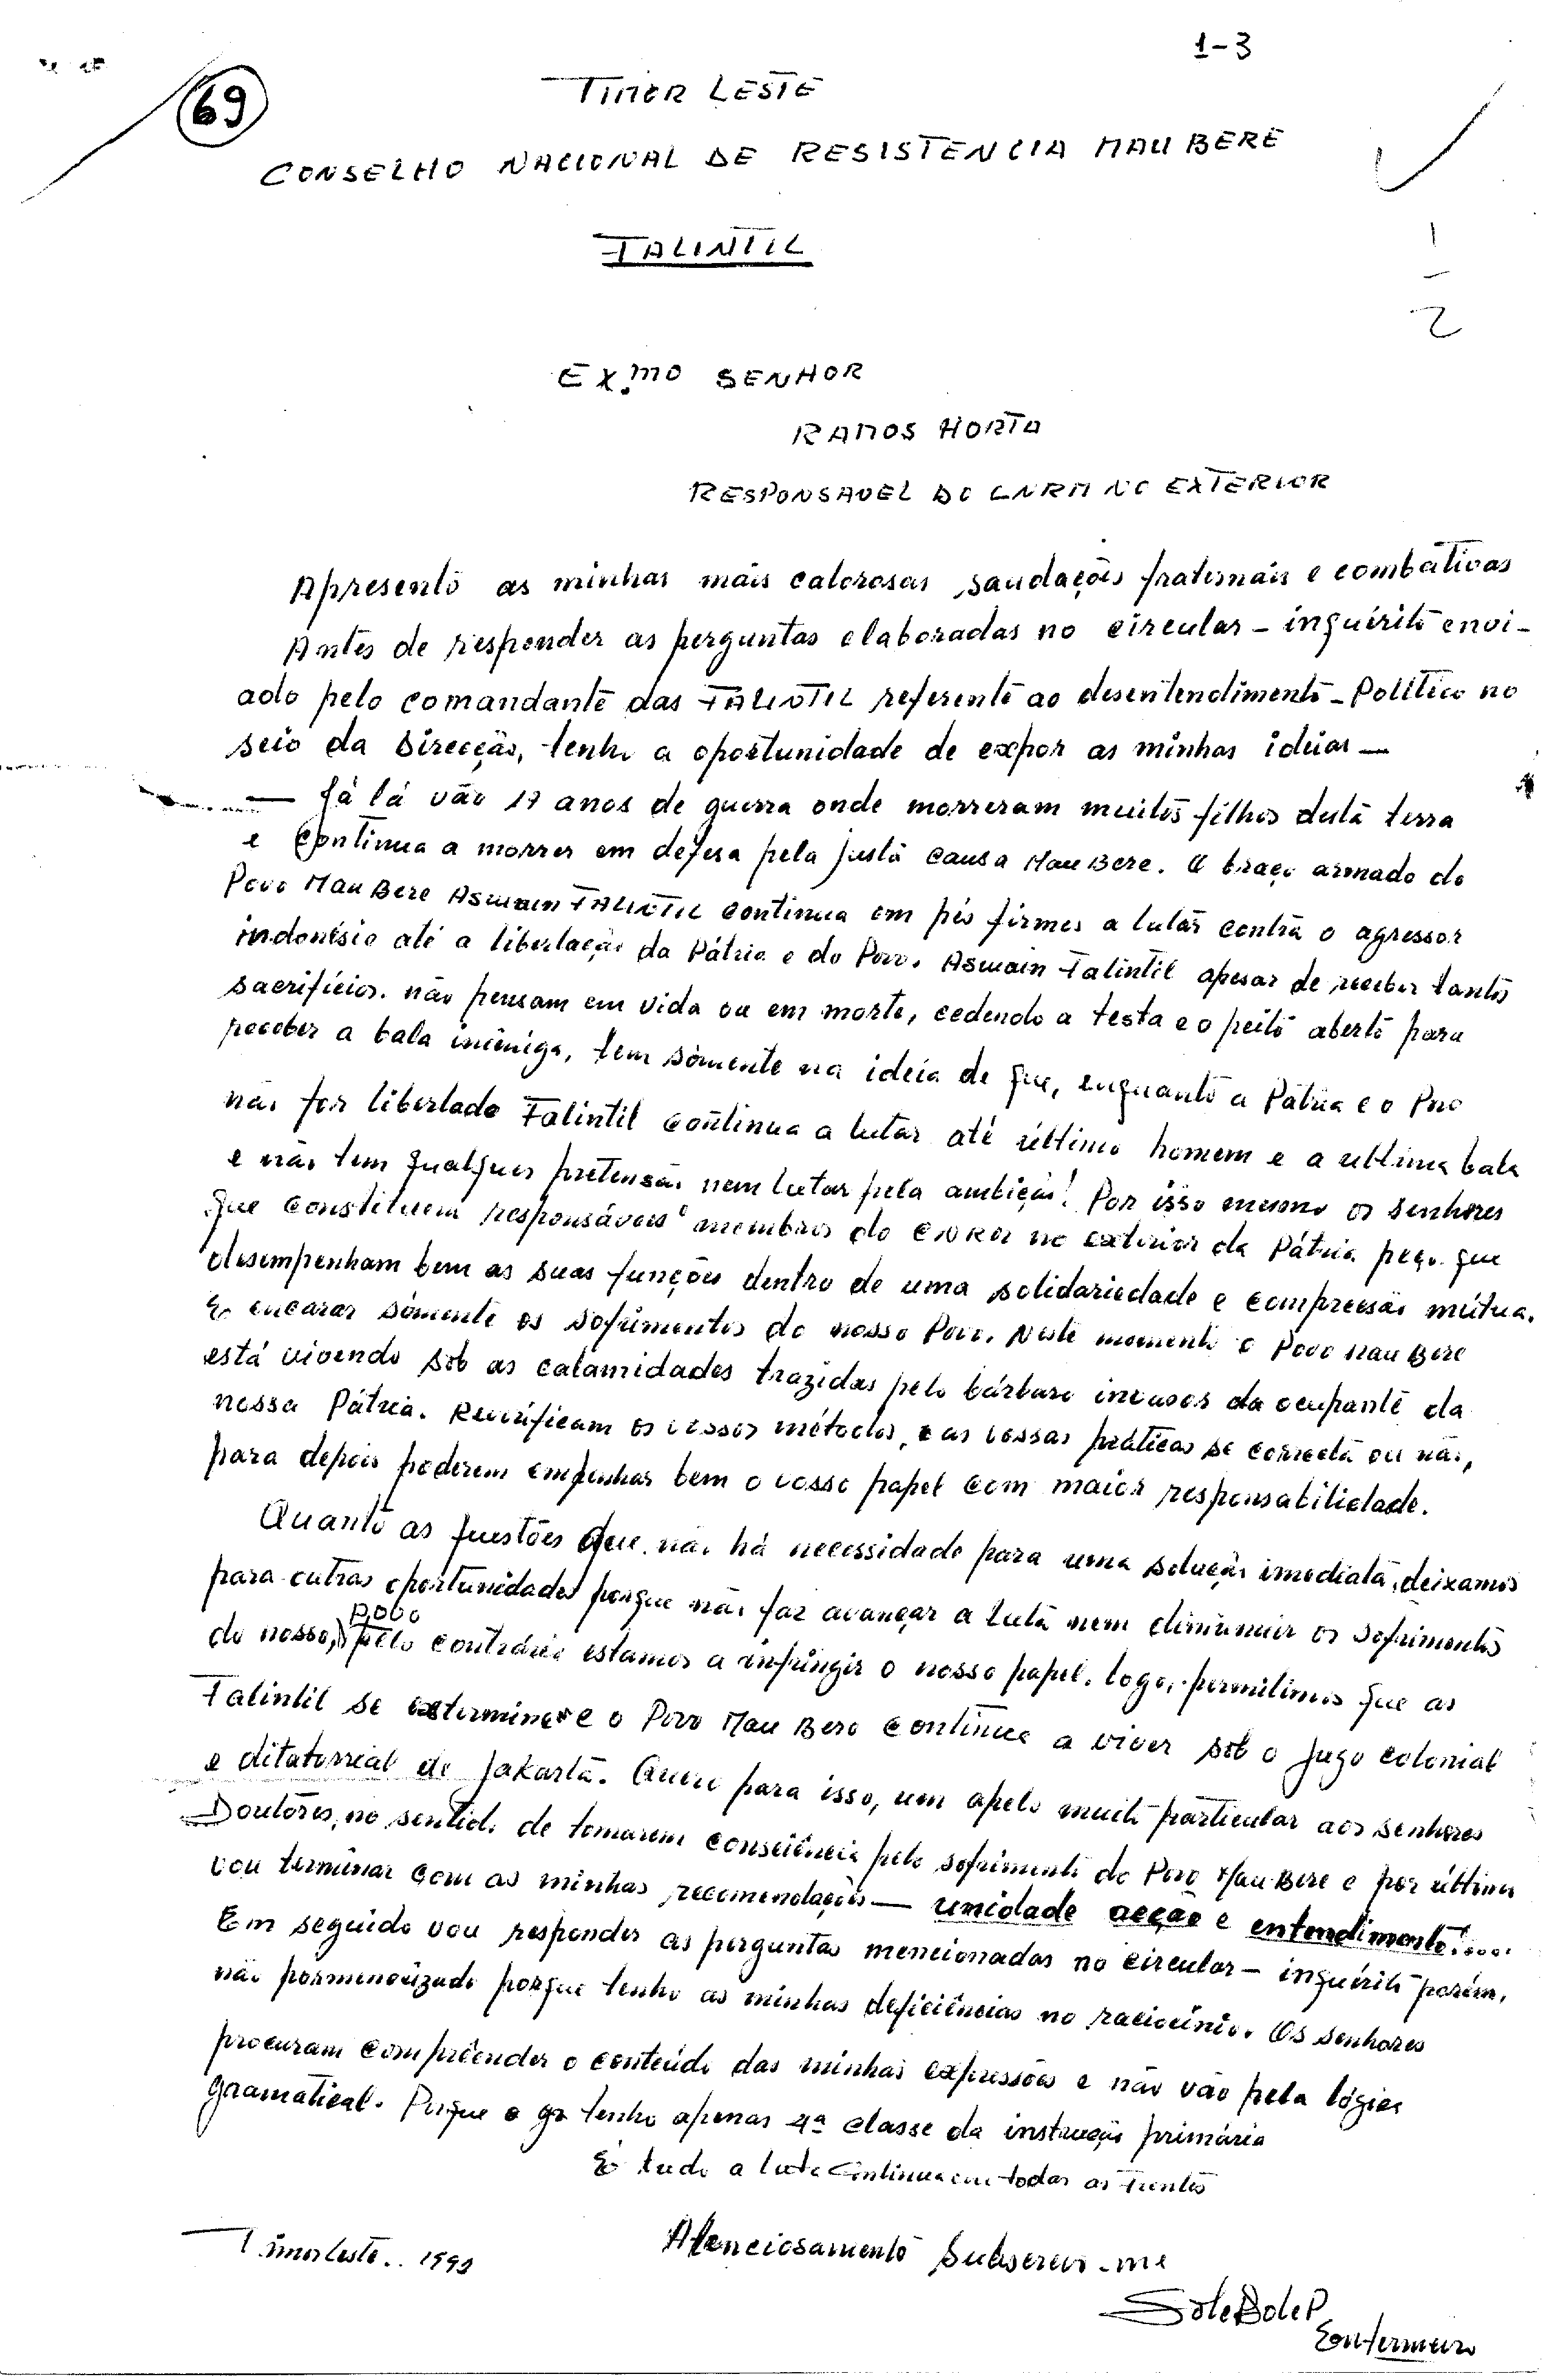 1-3
69
TIMOR LESTE
CONSELHO NACIONAL DE RESISTENCIA MAUBERE
FALINTIL
1
-
2
EX.MO SENHOR
RAMOS HORTA
RESPONSAVEL DO CNRM NO EXTERIOR
Apresento as minhas mais calorosas saudações fraternais e combativas
Antes de responder as perguntas elaboradas no circular - inquérito envi-
ado pelo comandante das FALINTIL referente ao desentendimento - Político no
seio da Direcção, tenho a oportunidade de expor as minhas idéias —
— Já lá vão 17 anos de guerra onde morreram muitos filhos desta terra
e continua a morrer em defesa pela justa causa MauBere. O braço armado do
Povo MauBere Aswain FALINTIL continua em pés firmes a lutar contra o agressor
indonésio até a libertação da Pátria e do Povo. Aswain Falintil apesar de receber tantos
sacrifícios. não pensam em vida ou em morte, cedendo a testa e o peito aberto para
receber a bala inimiga, tem sómente na ideia de que, enquanto a Pátria e o Povo
não for libertado Falintil continua a lutar até último homem e a ultima bala
e não tem qualquer pretensão nem lutar pela ambição! Por isso mesmo os senhores
que constituem responsáveis e membros do CNRM no exterior da Pátria peço que
desempenham bem as suas funções dentro de uma solidariedade e compreesão mútua.
E encarar sómente os sofrimentos do nosso Povo. Neste momento o Povo MauBere
está vivendo sob as calamidades trazidas pelo bárbaro invasor da ocupante da
nossa Pátria. Reverificam os vossos métodos, e as vossas práticas se correcta ou não,
para depois poderem empenhar bem o vosso papel com maior responsabilidade.
Quanto as questões que não há necessidade para uma solução imediata, deixamos
para outras oportunidades porque não faz avançar a luta nem diminuir os sofrimentos
povo
do nosso, pelo contrário estamos a infringir o nosso papel. logo, permitimos que as
Falintil se exterminar e o Povo MauBere continua a viver sob o jugo colonial
e ditatorrial de Jakarta. Quero para isso, um apelo muito particular aos senhores
Doutores, no sentido de tomarem consciência pelo sofrimento do Povo MauBere e por último
vou terminar com as minhas recomendações — unidade acção e entendimento!....
Em seguido vou responder as perguntas mencionadas no circular - inquérito porém,
não pormenorizado porque tenho as minhas deficiências no raciocínio. Os senhores
procuram comprêender o conteúdo das minhas expressões e não vão pela lógica
gramatical. Porque tenho apenas 4ª classe da instrução primária
É tudo a luta continua em todas as Frentes
Atenciosamente Subscrevo-me
Timor Leste..
SoleBoleP
Enfermeiro